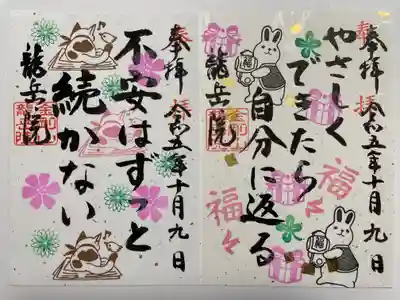 奉拝 令和五年十月九日
やさしく
できたら
自分に返る
福々
福々
福
福
龍岳院
奉拝 令和五年十月九日
不安はずっと
続かない
龍岳院